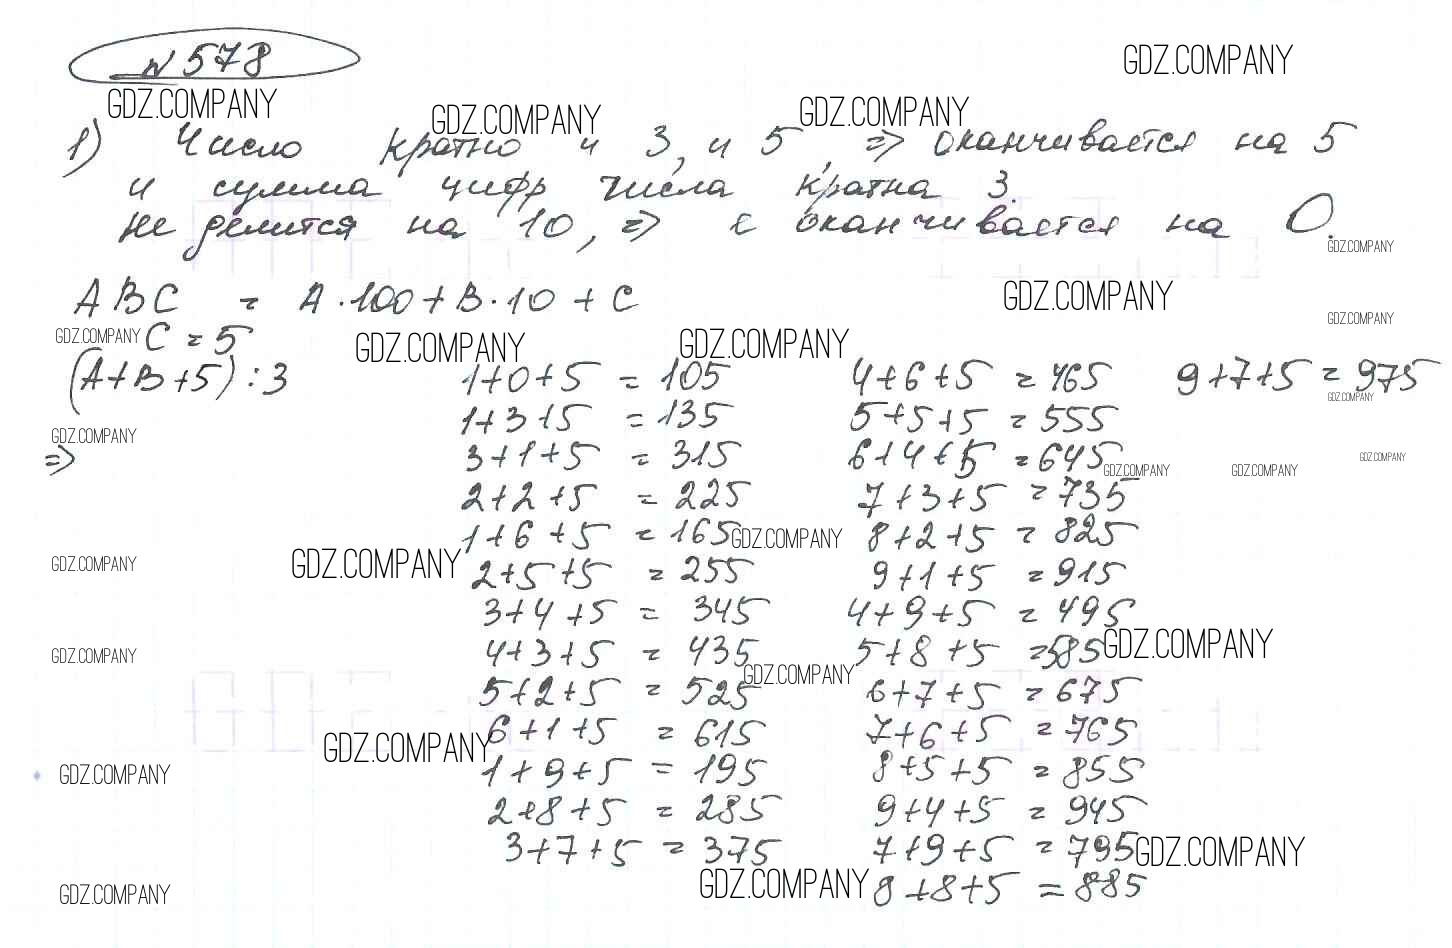 № 578
GDZ.COMPANY
GDZ.COMPANY
GDZ.COMPANY
GDZ.COMPANY
1) Число кратно и 3, и 5, => оканчивается на 5
и сумма цифр числа кратна 3.
не делится на 10, => оканчивается на 0.
GDZ.COMPANY
ABC = A·100+B·10+C
GDZ.COMPANY
GDZ.COMPANY
GDZ.COMPANY C = 5
GDZ.COMPANY
GDZ.COMPANY
(A+B+5):3
1+0+5 = 105
4+6+5 = 465
9+7+5 = 975
GDZ.COMPANY
1+3+5 = 135
5+5+5 = 555
GDZ.COMPANY
=>
3+1+5 = 315
6+4+5 = 645
GDZ.COMPANY
GDZ.COMPANY
GDZ.COMPANY
2+2+5 = 225
7+3+5 = 735
1+6+5 = 165
GDZ.COMPANY
8+2+5 = 825
GDZ.COMPANY
GDZ.COMPANY
2+5+5 = 255
9+1+5 = 915
3+4+5 = 345
4+9+5 = 495
GDZ.COMPANY
4+3+5 = 435
5+8+5 = 585
GDZ.COMPANY
GDZ.COMPANY
5+2+5 = 525
6+7+5 = 675
GDZ.COMPANY
6+1+5 = 615
7+6+5 = 765
GDZ.COMPANY
1+9+5 = 195
8+5+5 = 855
2+8+5 = 285
9+4+5 = 945
3+7+5 = 375
7+9+5 = 795
GDZ.COMPANY
GDZ.COMPANY
GDZ.COMPANY
8+8+5 = 885